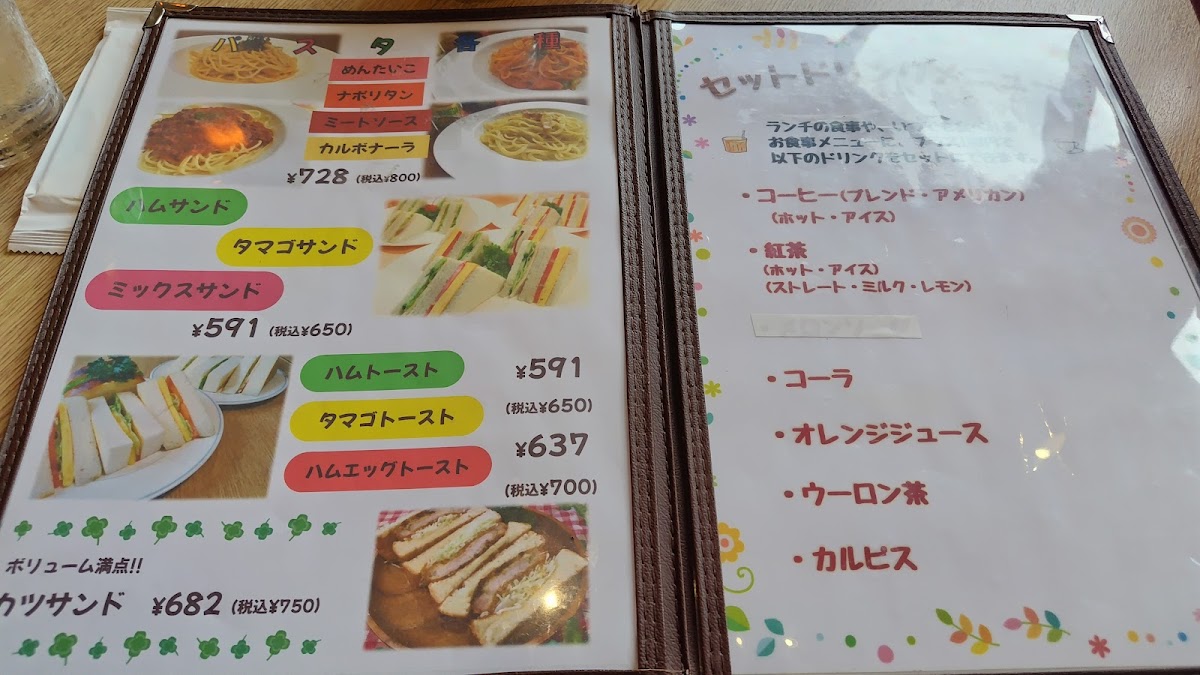 パスタ各種
めんたいこ
ナポリタン
ミートソース
カルボナーラ
¥728 (税込¥800)
ハムサンド
タマゴサンド
ミックスサンド
¥591 (税込¥650)
ハムトースト
¥591
(税込¥650)
タマゴトースト
¥637
ハムエッグトースト
(税込¥700)
ボリューム満点!!
カツサンド ¥682 (税込¥750)
セットドリンクメニュー
ランチの食事や、
お食事メニューに、
以下のドリンクをセット
・コーヒー(ブレンド・アメリカン)
(ホット・アイス)
・紅茶
(ホット・アイス)
(ストレート・ミルク・レモン)
・コーラ
・オレンジジュース
・ウーロン茶
・カルピス